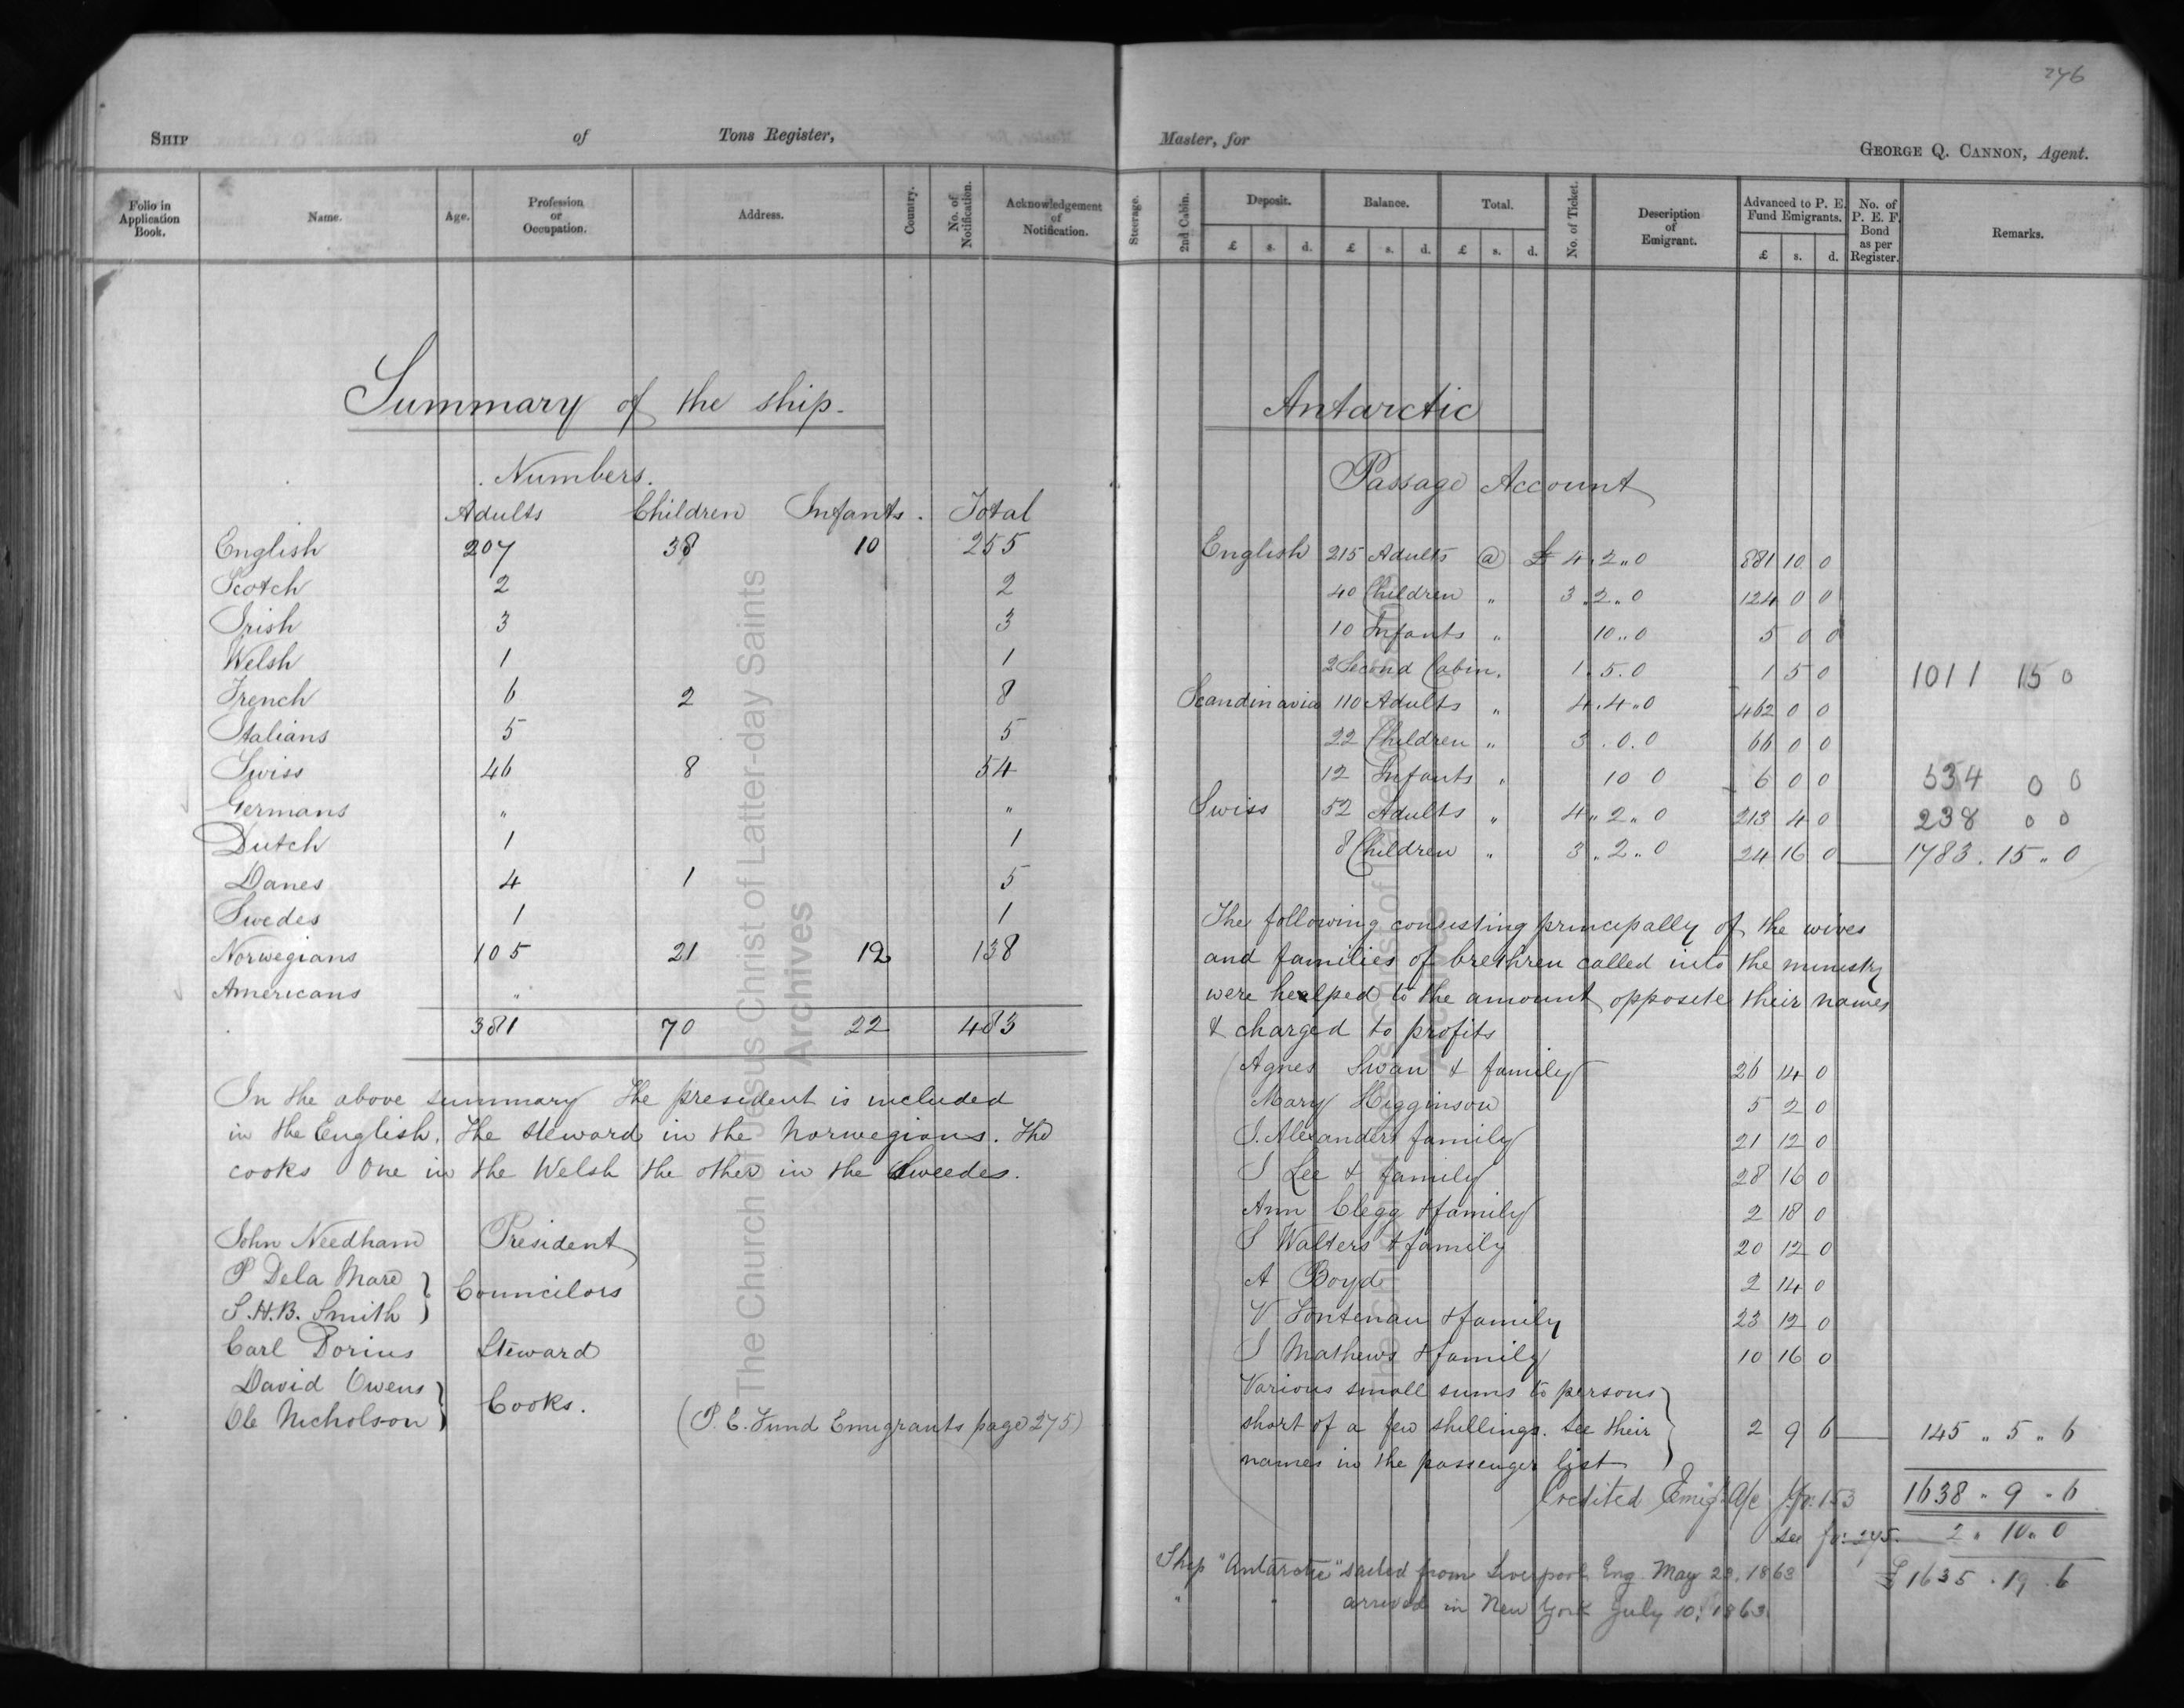 246
SHIP of Tons Register,
Master, for
GEORGE Q. CANNON, Agent.
Folio in Application Book. Name. Age. Profession or Occupation. Address. Country. No. of Notification. Acknowledgement of Notification.
Steerage. 2nd Cabin. Deposit. Balance. Total. No. of Ticket. Description of Emigrant. Advanced to P. E. Fund Emigrants. No. of P. E. F. Bond as per Register. Remarks.
£ s. d. £ s. d. £ s. d. £ s. d.
Summary of the ship.
Numbers.
Adults Children Infants. Total
English 207 38 10 255
Scotch 2 2
Irish 3 3
Welsh 1 1
French 6 2 8
Italians 5 5
Swiss 46 8 54
Germans " "
Dutch 1 1
Danes 4 1 5
Swedes 1 1
Norwegians 105 21 12 138
Americans "
381 70 22 483
In the above summary the president is included
in the English, the steward in the Norwegians. The
cooks One in the Welsh the other in the Sweedes.
John Needham President
P Dela Mare } Councilors
S.H.B. Smith }
Carl Dorius Steward
David Owens } Cooks.
Ole Nicholson }
(P. E. Fund Emigrants page 275)
Antarctic
Passage Account
English 215 Adults @ £ 4.2.0 881 10 0
40 Children " 3.2.0 124 0 0
10 Infants " 10..0 5 0 0
2 Second Cabin. 1.5.0 1 5 0 1011 15 0
Scandinavia 110 Adults " 4.4.0 462 0 0
22 Children " 3.0.0 66 0 0
12 Infants " 10 0 6 0 0 534 0 0
Swiss 52 Adults " 4.2.0 213 4 0 238 0 0
8 Children " 3.2.0 24 16 0 1783.15.0
The following consisting principally of the wives
and families of brethren called into the ministry
were helped to the amount opposite their names
& charged to profits
Agnes Swan & family 26 14 0
Mary Higginson 5 2 0
S. Alexanders family 21 12 0
S Lee & family 28 16 0
Ann Clegg & family 2 18 0
S Walters & family 20 12 0
A Boyd 2 14 0
V Fontenau & family 23 12 0
S Mathews & family 10 16 0
Various small sums to persons }
short of a few shillings. See their } 2 9 6 145 " 5 " 6
names in the passenger list }
Credited Emig. A/c 153 1638 " 9 " 6
see fo: 245. 2 " 10 " 0
£1635.19.6
Ship "Antarctic" sailed from Liverpool Eng May 23. 1863
" " arrived in New York July 10, 1863.
The Church of Jesus Christ of Latter-day Saints
Archives